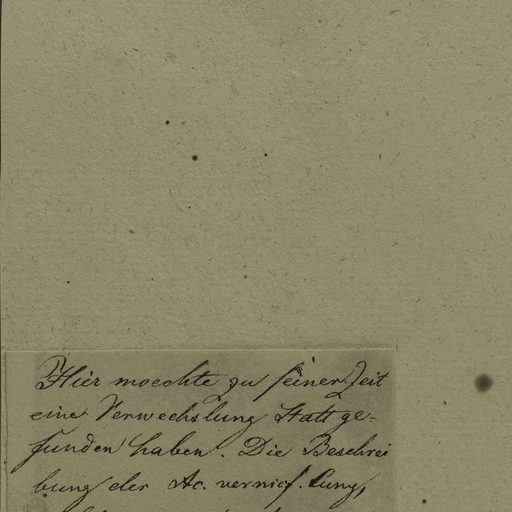 Hier moechte zu seiner Zeit
eine Verwechslung Statt ge-
funden haben. Die Beschrei
bung der Ac. vernicf. Cung,